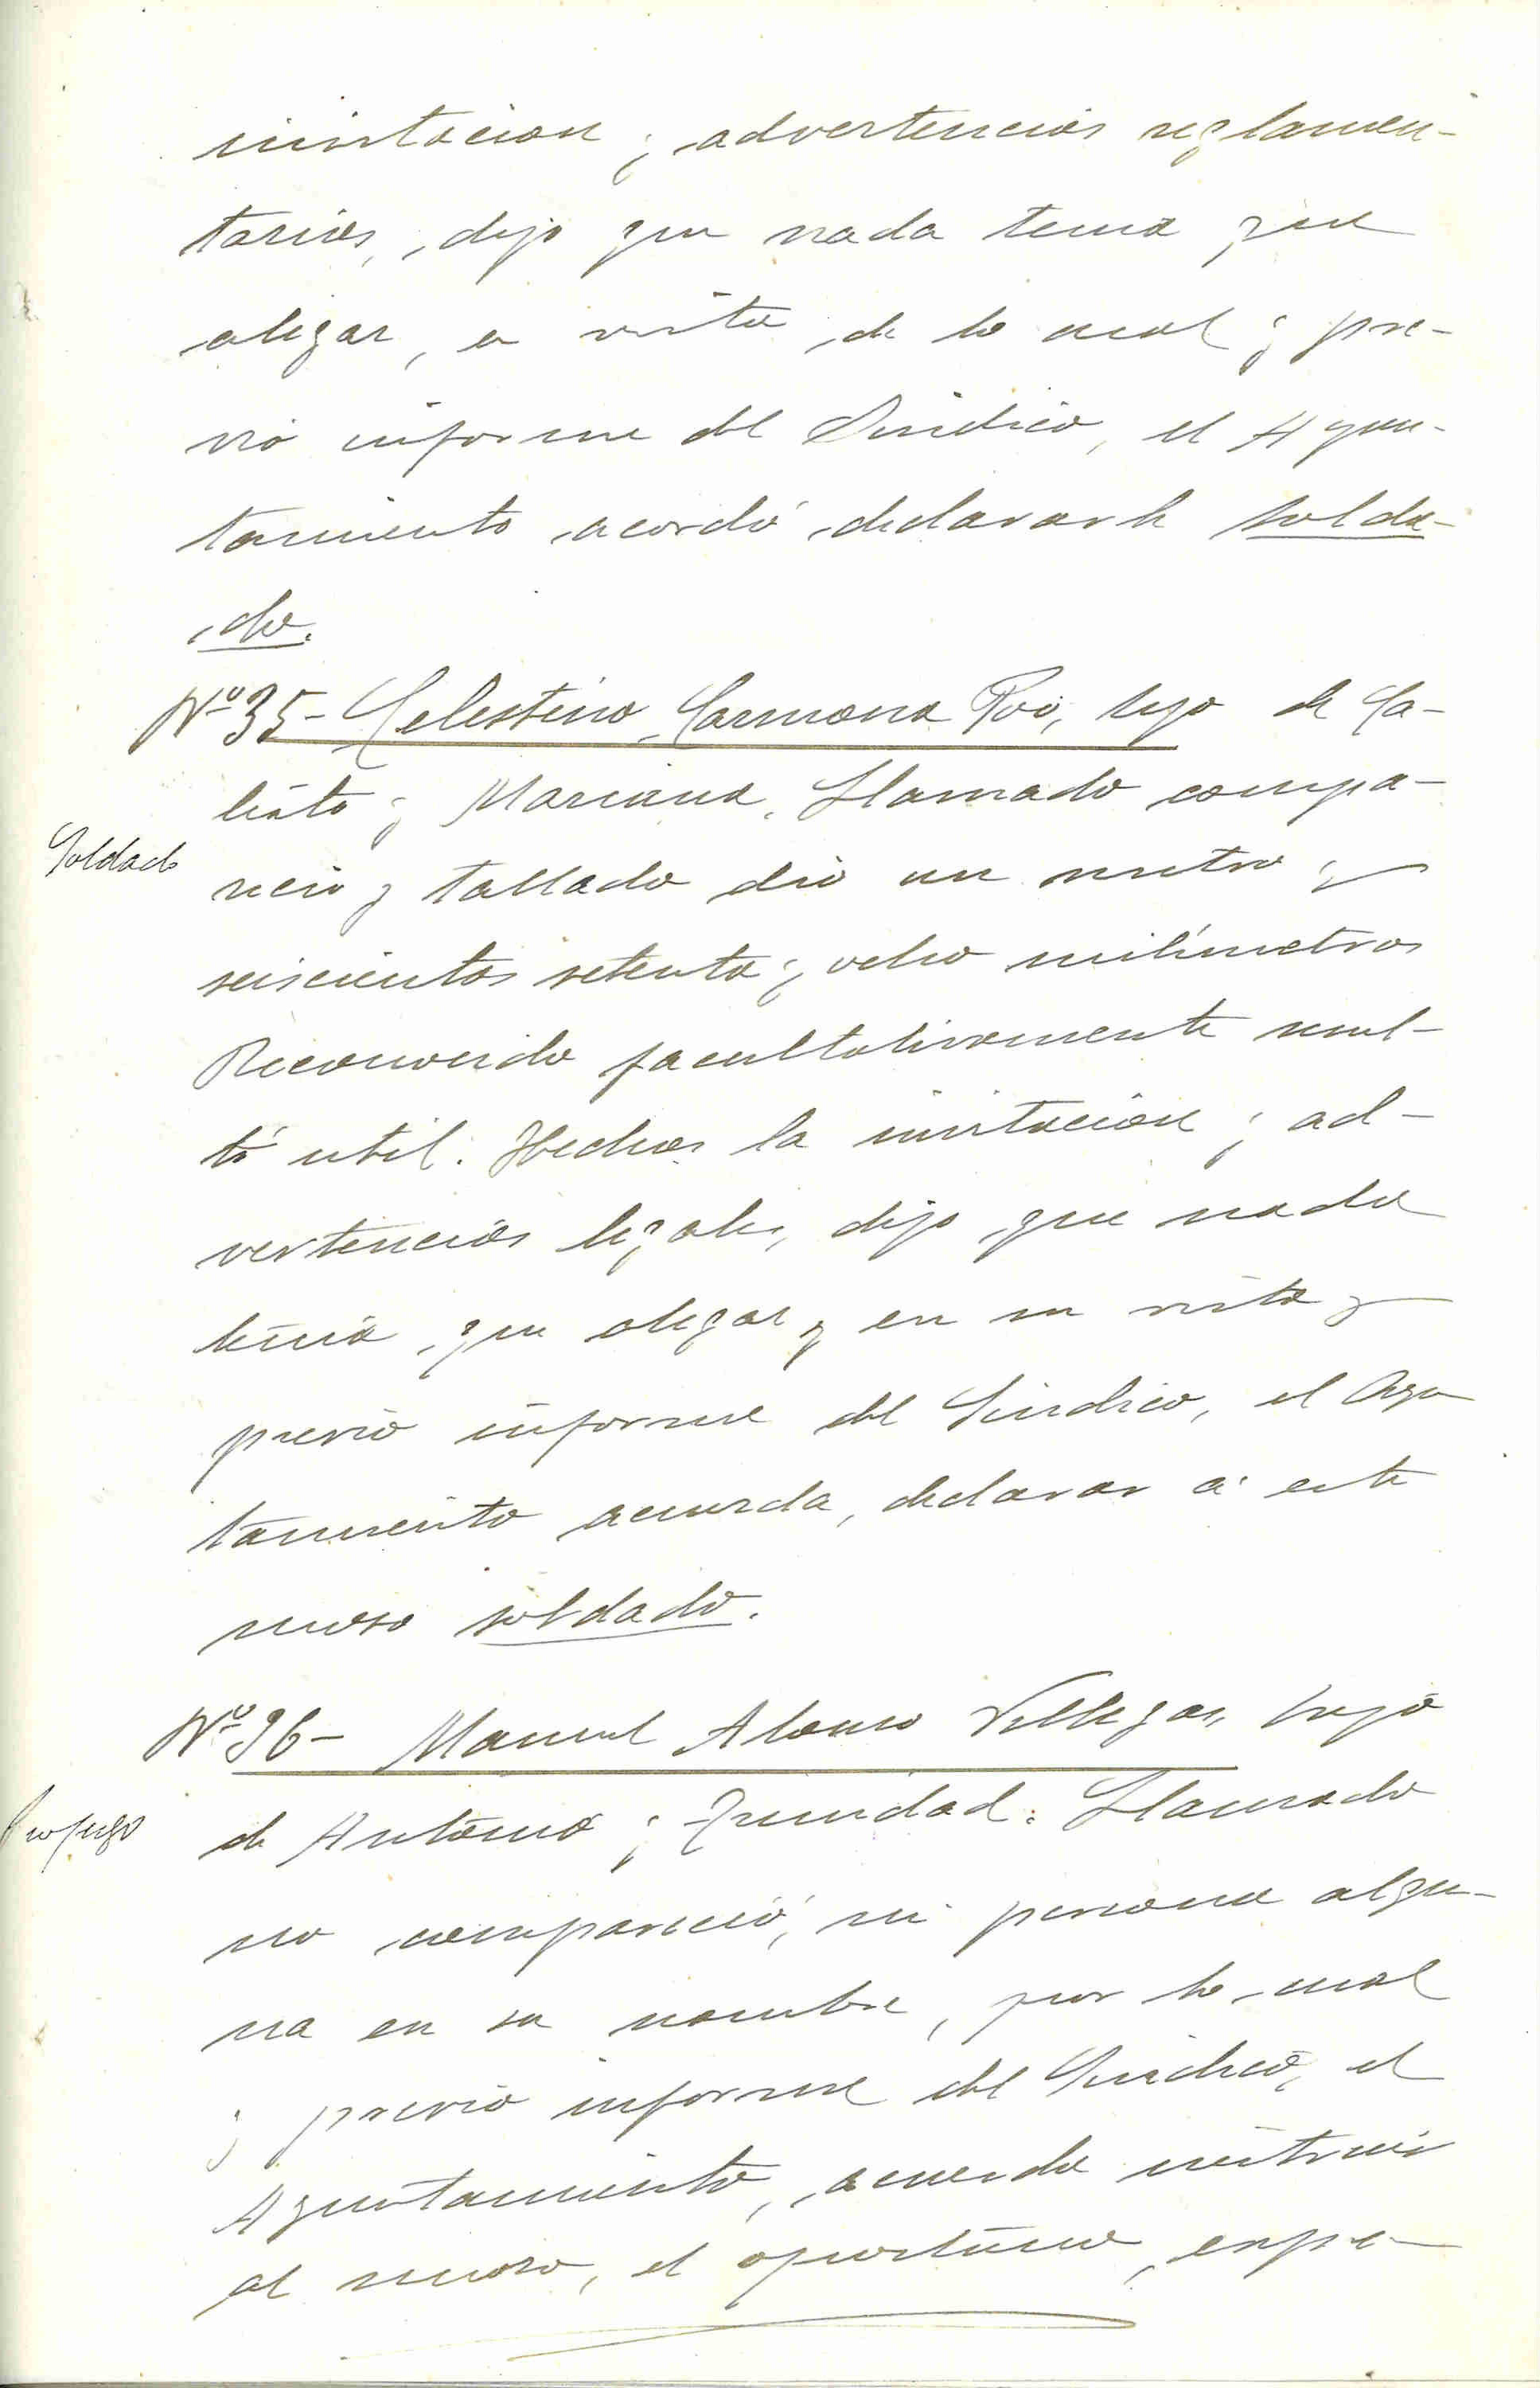 invitacion y advertencias reglamen-
tarias, dijo que nada tenia que
alegar, en vista de lo cual y pre-
vio informe del Sindico, el Ayun-
tamiento acordó declararle solda-
do.
Nº 35- Celestino Carmona Poó, hijo de Ca-
listo y Mariana. Llamado compa-
Soldado
reció y tallado dió un metro y
seiscientos setenta y ocho milímetros
Reconocido facultativamente resul-
tó util. Hechas la invitacion y ad-
vertencias legales, dijo que nada
tenia que alegar y en su vista y
previo informe del Sindico, el Ayun
tamiento acuerda, declarar á este
mozo soldado.
Nº 36- Manuel Alonso Villegas, hijo
Profugo
de Antonio y Trinidad. Llamado
no compareció, ni persona algu-
na en su nombre, por lo cual
y previo informe del Sindico, el
Ayuntamiento, acuerda instruir
al mozo, el oportuno expe-